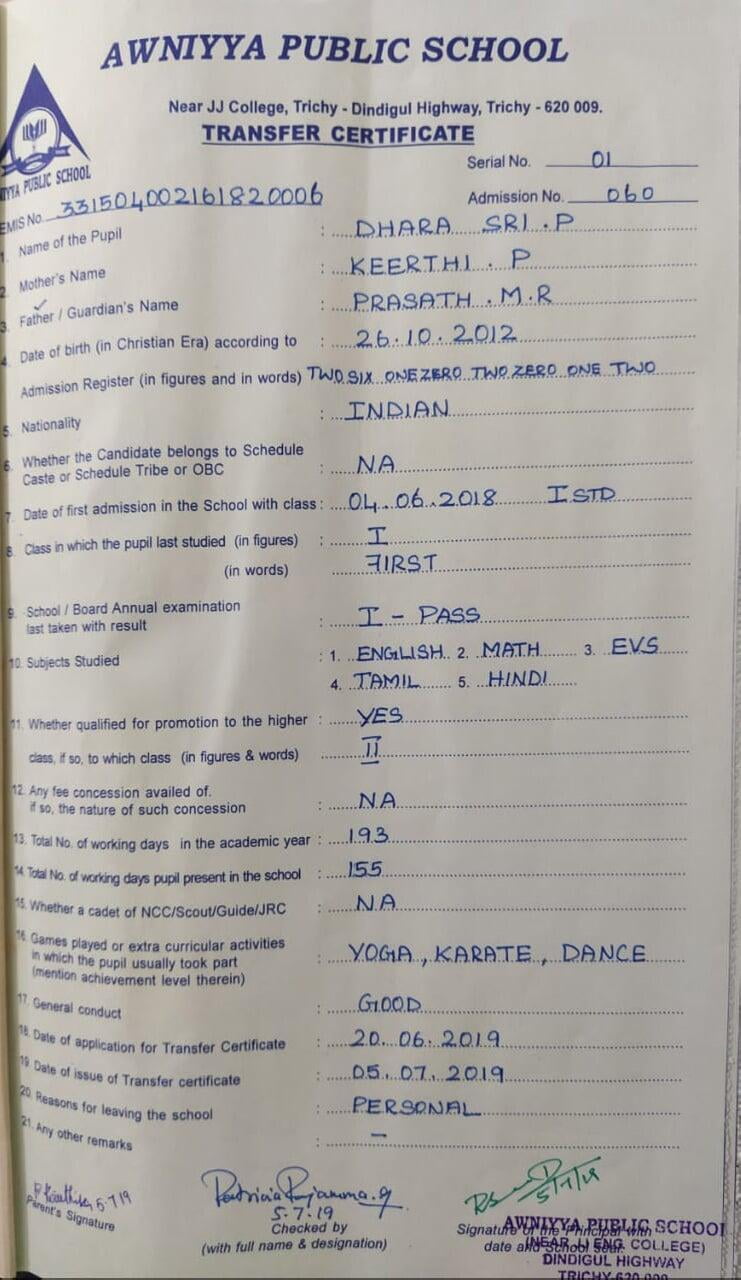 AWNIYYA PUBLIC SCHOOL
Near JJ College, Trichy - Dindigul Highway, Trichy - 620 009.
TRANSFER CERTIFICATE
Serial No. 01
YYA PUBLIC SCHOOL
EMIS No. 331504002161820006 Admission No. 060
1. Name of the Pupil : DHARA SRI . P
2. Mother's Name : KEERTHI . P
3. Father / Guardian's Name : PRASATH . M . R
4. Date of birth (in Christian Era) according to : 26.10.2012
Admission Register (in figures and in words) TWO SIX ONE ZERO TWO ZERO ONE TWO
5. Nationality : INDIAN
6. Whether the Candidate belongs to Schedule
Caste or Schedule Tribe or OBC : NA
7. Date of first admission in the School with class : 04.06.2018 I STD
8. Class in which the pupil last studied (in figures) : I
(in words) FIRST
9. School / Board Annual examination
last taken with result : I - PASS
10. Subjects Studied : 1. ENGLISH 2. MATH 3. EVS
4. TAMIL 5. HINDI
11. Whether qualified for promotion to the higher : YES
class, if so, to which class (in figures & words) II
12. Any fee concession availed of.
if so, the nature of such concession : NA
13. Total No. of working days in the academic year : 193
14. Total No. of working days pupil present in the school : 155
15. Whether a cadet of NCC/Scout/Guide/JRC : NA
16. Games played or extra curricular activities
in which the pupil usually took part : YOGA, KARATE, DANCE
(mention achievement level therein)
17. General conduct : GOOD
18. Date of application for Transfer Certificate : 20.06.2019
19. Date of issue of Transfer certificate : 05.07.2019
20. Reasons for leaving the school : PERSONAL
21. Any other remarks : -
5.7.19
Parent's Signature
5.7.19
Checked by
(with full name & designation)
5/7/19
Signature of the Principal with
date and School Seal
AWNIYYA PUBLIC SCHOOL
(NEAR JJ ENG. COLLEGE)
DINDIGUL HIGHWAY
TRICHY-620 009